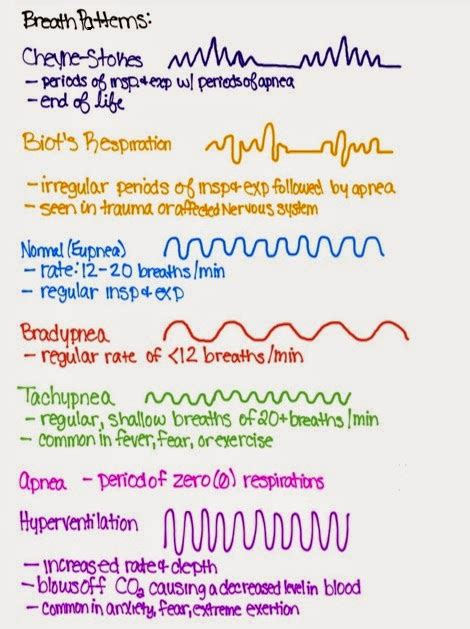 Breath Patterns:
Cheyne-Stokes
- periods of insp & exp w/ periods of apnea
- end of life
Biot's Respiration
- irregular periods of insp & exp followed by apnea
- seen in trauma or affected Nervous System
Normal (Eupnea)
- rate: 12-20 breaths/min
- regular insp & exp
Bradypnea
- regular rate of <12 breaths/min
Tachypnea
- regular, shallow breaths of 20+ breaths/min
- common in fever, fear, or exercise
Apnea - period of zero (0) respirations
Hyperventilation
- increased rate & depth
- blows off CO₂ causing a decreased level in blood
- common in anxiety, fear, extreme exertion